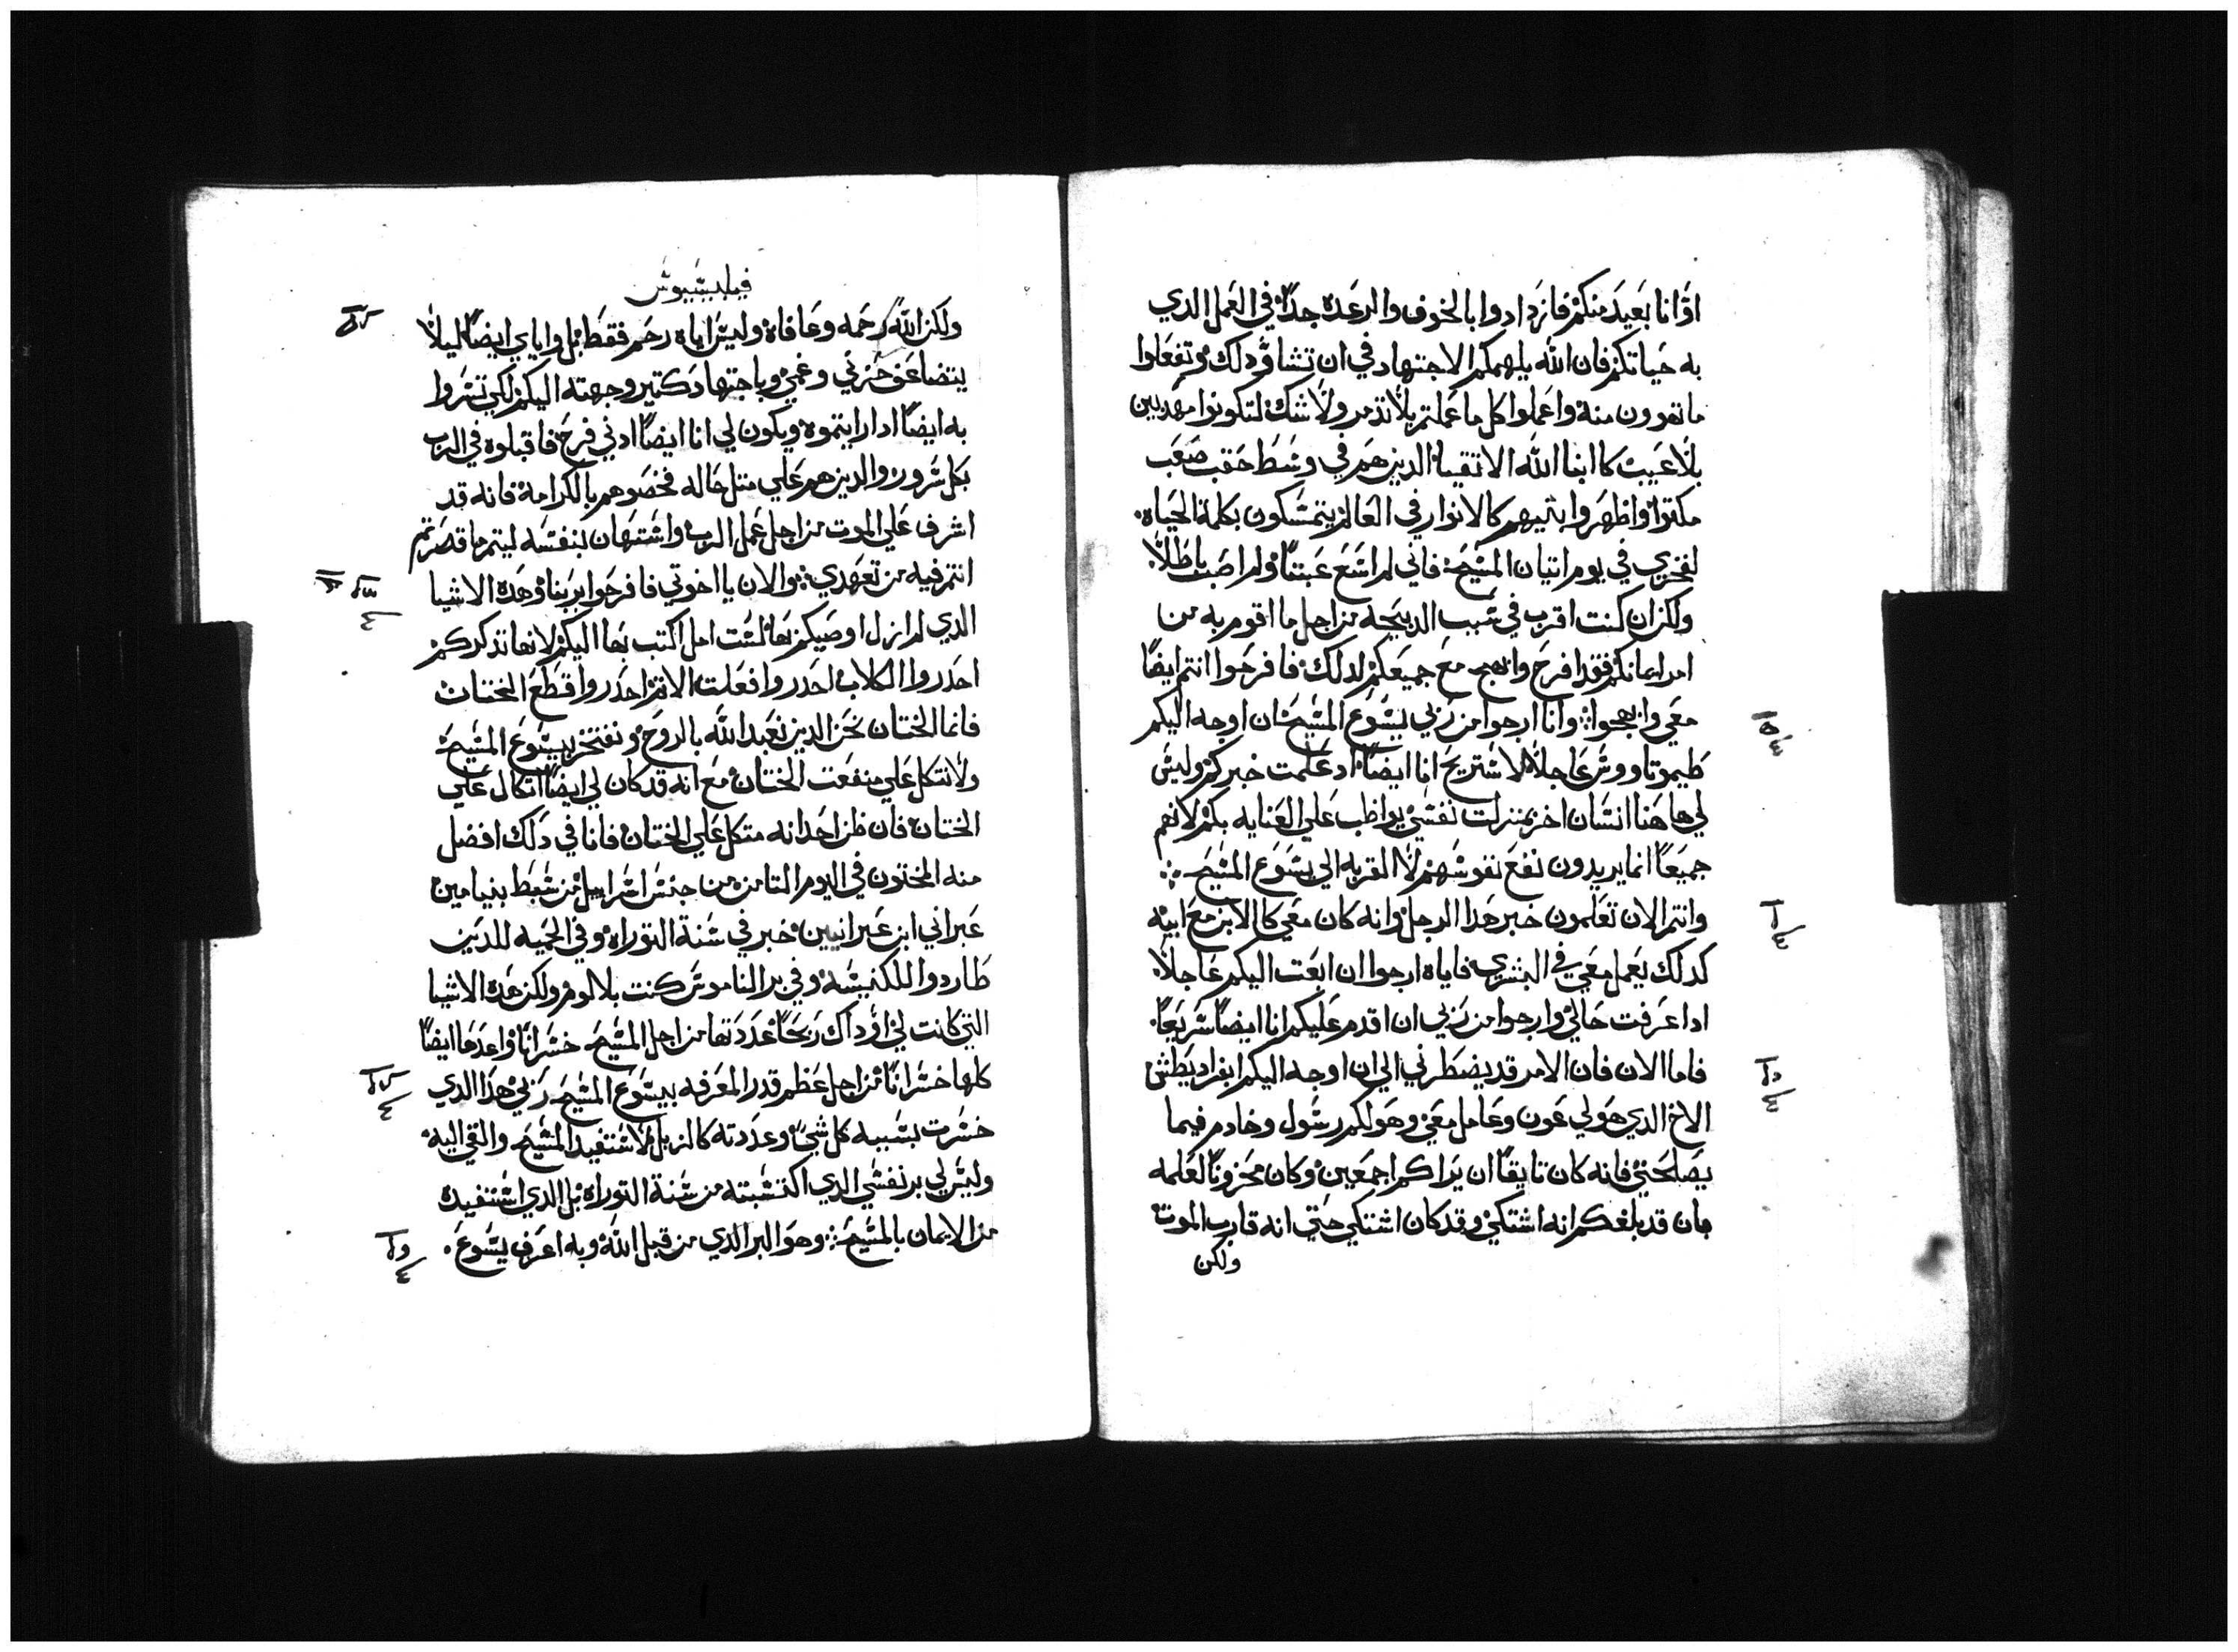 اوانا بعيد منكم فازدادوا بالخوف والرعده جدا في العمل الدي
به حياتكم فان الله يلهمكم الاجتهاد في ان تشاو دلك وتفعلوا
ما تهوون منه واعملوا كل ما عملتم بلا تدمر ولا شك لتكونوا مهديين
بلا عيب كابنا الله الاتقيا الدين هم في وسط حقب صعب
ملتوا واظهروا بينهم كالانوار في العالم يتمسكون بكلمة الحياه.
لفخري في يوم اتيان المسيح فاني لم اسع عبتا ولم اصب باطلا.
ولكن ان كنت اقرب في سبب الدبيحه من اجل ما اقوم به من
امر ايمانكم فقد افرح وابهج مع جميعكم لدلك فافرحوا انتم ايضا
معي وابهجوا: وانا ارجوا من ربي يسوع المسيح ان اوجه اليكم
طيموتاووس عاجلا لاستريح انا ايضا اد علمت خبركم وليس
لي هاهنا انسان اخر بمنزلت نفسي يواظب علي العنايه بكم لانهم
جميعا انما يريدون نفع نفوسهم لا القربه الي يسوع المسيح ::
وانتم الان تعلمون خبر هدا الرجل وانه كان معي كالابن مع ابيه
كدلك يعمل معي في البشري فاياه ارجوا ان ابعت اليكم عاجلا.
ادا عرفت حالي وارجوا من ربي ان اقدم عليكم انا ايضا سريعا.
فاما الان فان الامر قد يضطرني الي ان اوجه اليكم ابفراديطس
الاخ الدي هو لي عون وعامل معي وهو لكم رسول وخادم فيما
يصلحني فانه كان تايقا ان يراكم اجمعين وكان محزونا لعلمه
بان قد بلغكم انه اشتكي وقد كان اشتكي حتي انه قارب الموت
ولكن
فيليبسيوس
ولكن الله رحمه وعافاه وليس اياه رحم فقط بل واياي ايضا ليلا
يتضاعف حزني وغمي وباجتهاد كتير وجهته اليكم لكي تسروا
به ايضا ادا رايتموه ويكون لي انا ايضا ادني فرح فاقبلوه في الرب
بكل سرور والدين هم علي متل حاله فخصوهم بالكرامة فانه قد
اشرف علي الموت من اجل عمل الرب واستهان بنفسه ليتم ما قصرتم
انتم فيه من تعهدي: والان يا اخوتي فافرحوا بربنا وهده الاشيا
الدي لم ازل اوصيكم بها لست امل اكتب بها اليكم لانها تدكركم
احدروا الكلاب احدروا فعلت الاتم احدروا قطع الختان
فانما الختان نحن الدين نعبد الله بالروح ونفتخر بيسوع المسيح
ولا نتكل علي منفعت الختان مع انه قد كان لي ايضا اتكال علي
الختان فان ظن احد انه متكل علي الختان فانا في دلك افضل
منه المختون في اليوم التامن من جنس اسراييل من سبط بنيامين
عبراني ابن عبرانيين خبر في سنة التوراه وفي الحميه للدين
طاردوا للكنيسه وفي بر الناموس كنت بلا لوم ولكن هده الاشيا
التي كانت لي اوداك ربحا عددتها من اجل المسيح خسرانا واعدها ايضا
كلها خسرانا من اجل عظم قدر المعرفه بيسوع المسيح ربي هدا الدي
خسرت بسببه كل شي وعددته كالزبل لاستفيد المسيح والقي اليه
وليس لي بر نفسي الدي اكتسبته من سنة التوراه بل الدي استفيده
من الايمان بالمسيح: وهو البر الدي من قبل الله وبه اعرف يسوع.